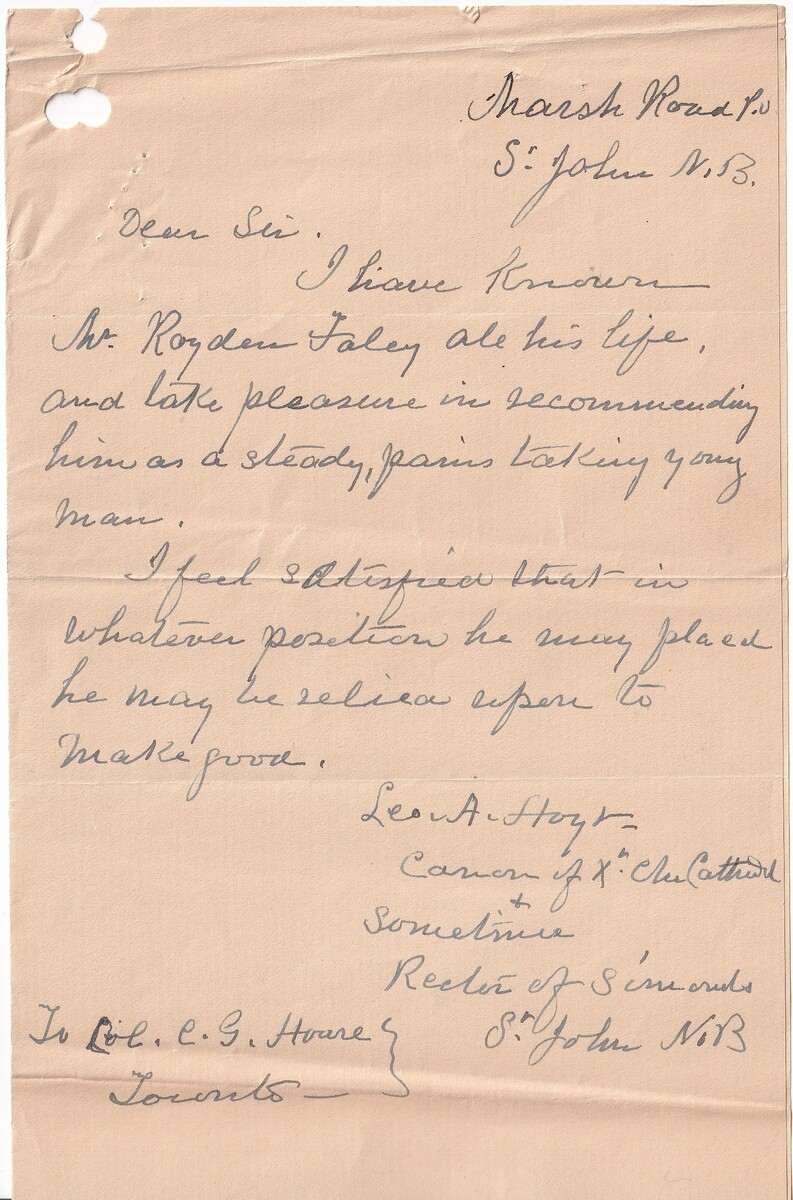 Marsh Road P.O
St. John N.B.
Dear Sir.
I have known
Mr. Royden Foley all his life,
and take pleasure in recommending
him as a steady, pains taking young
man.
I feel satisfied that in
whatever position he may placed
he may be relied upon to
make good.
Geo. A. Hoyt
Canon of Xt. Ch Cathedral
+
Sometime
Rector of Simonds
St John N.B
To Col. C. G. Hoare
Toronto